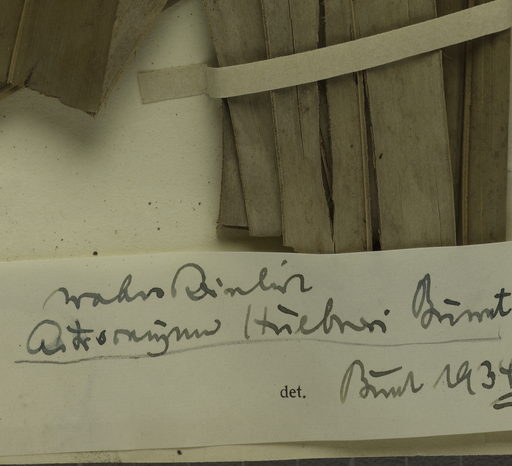 wahrscheinlich
Astrocaryum Huebneri Burret
det. Burret 1934